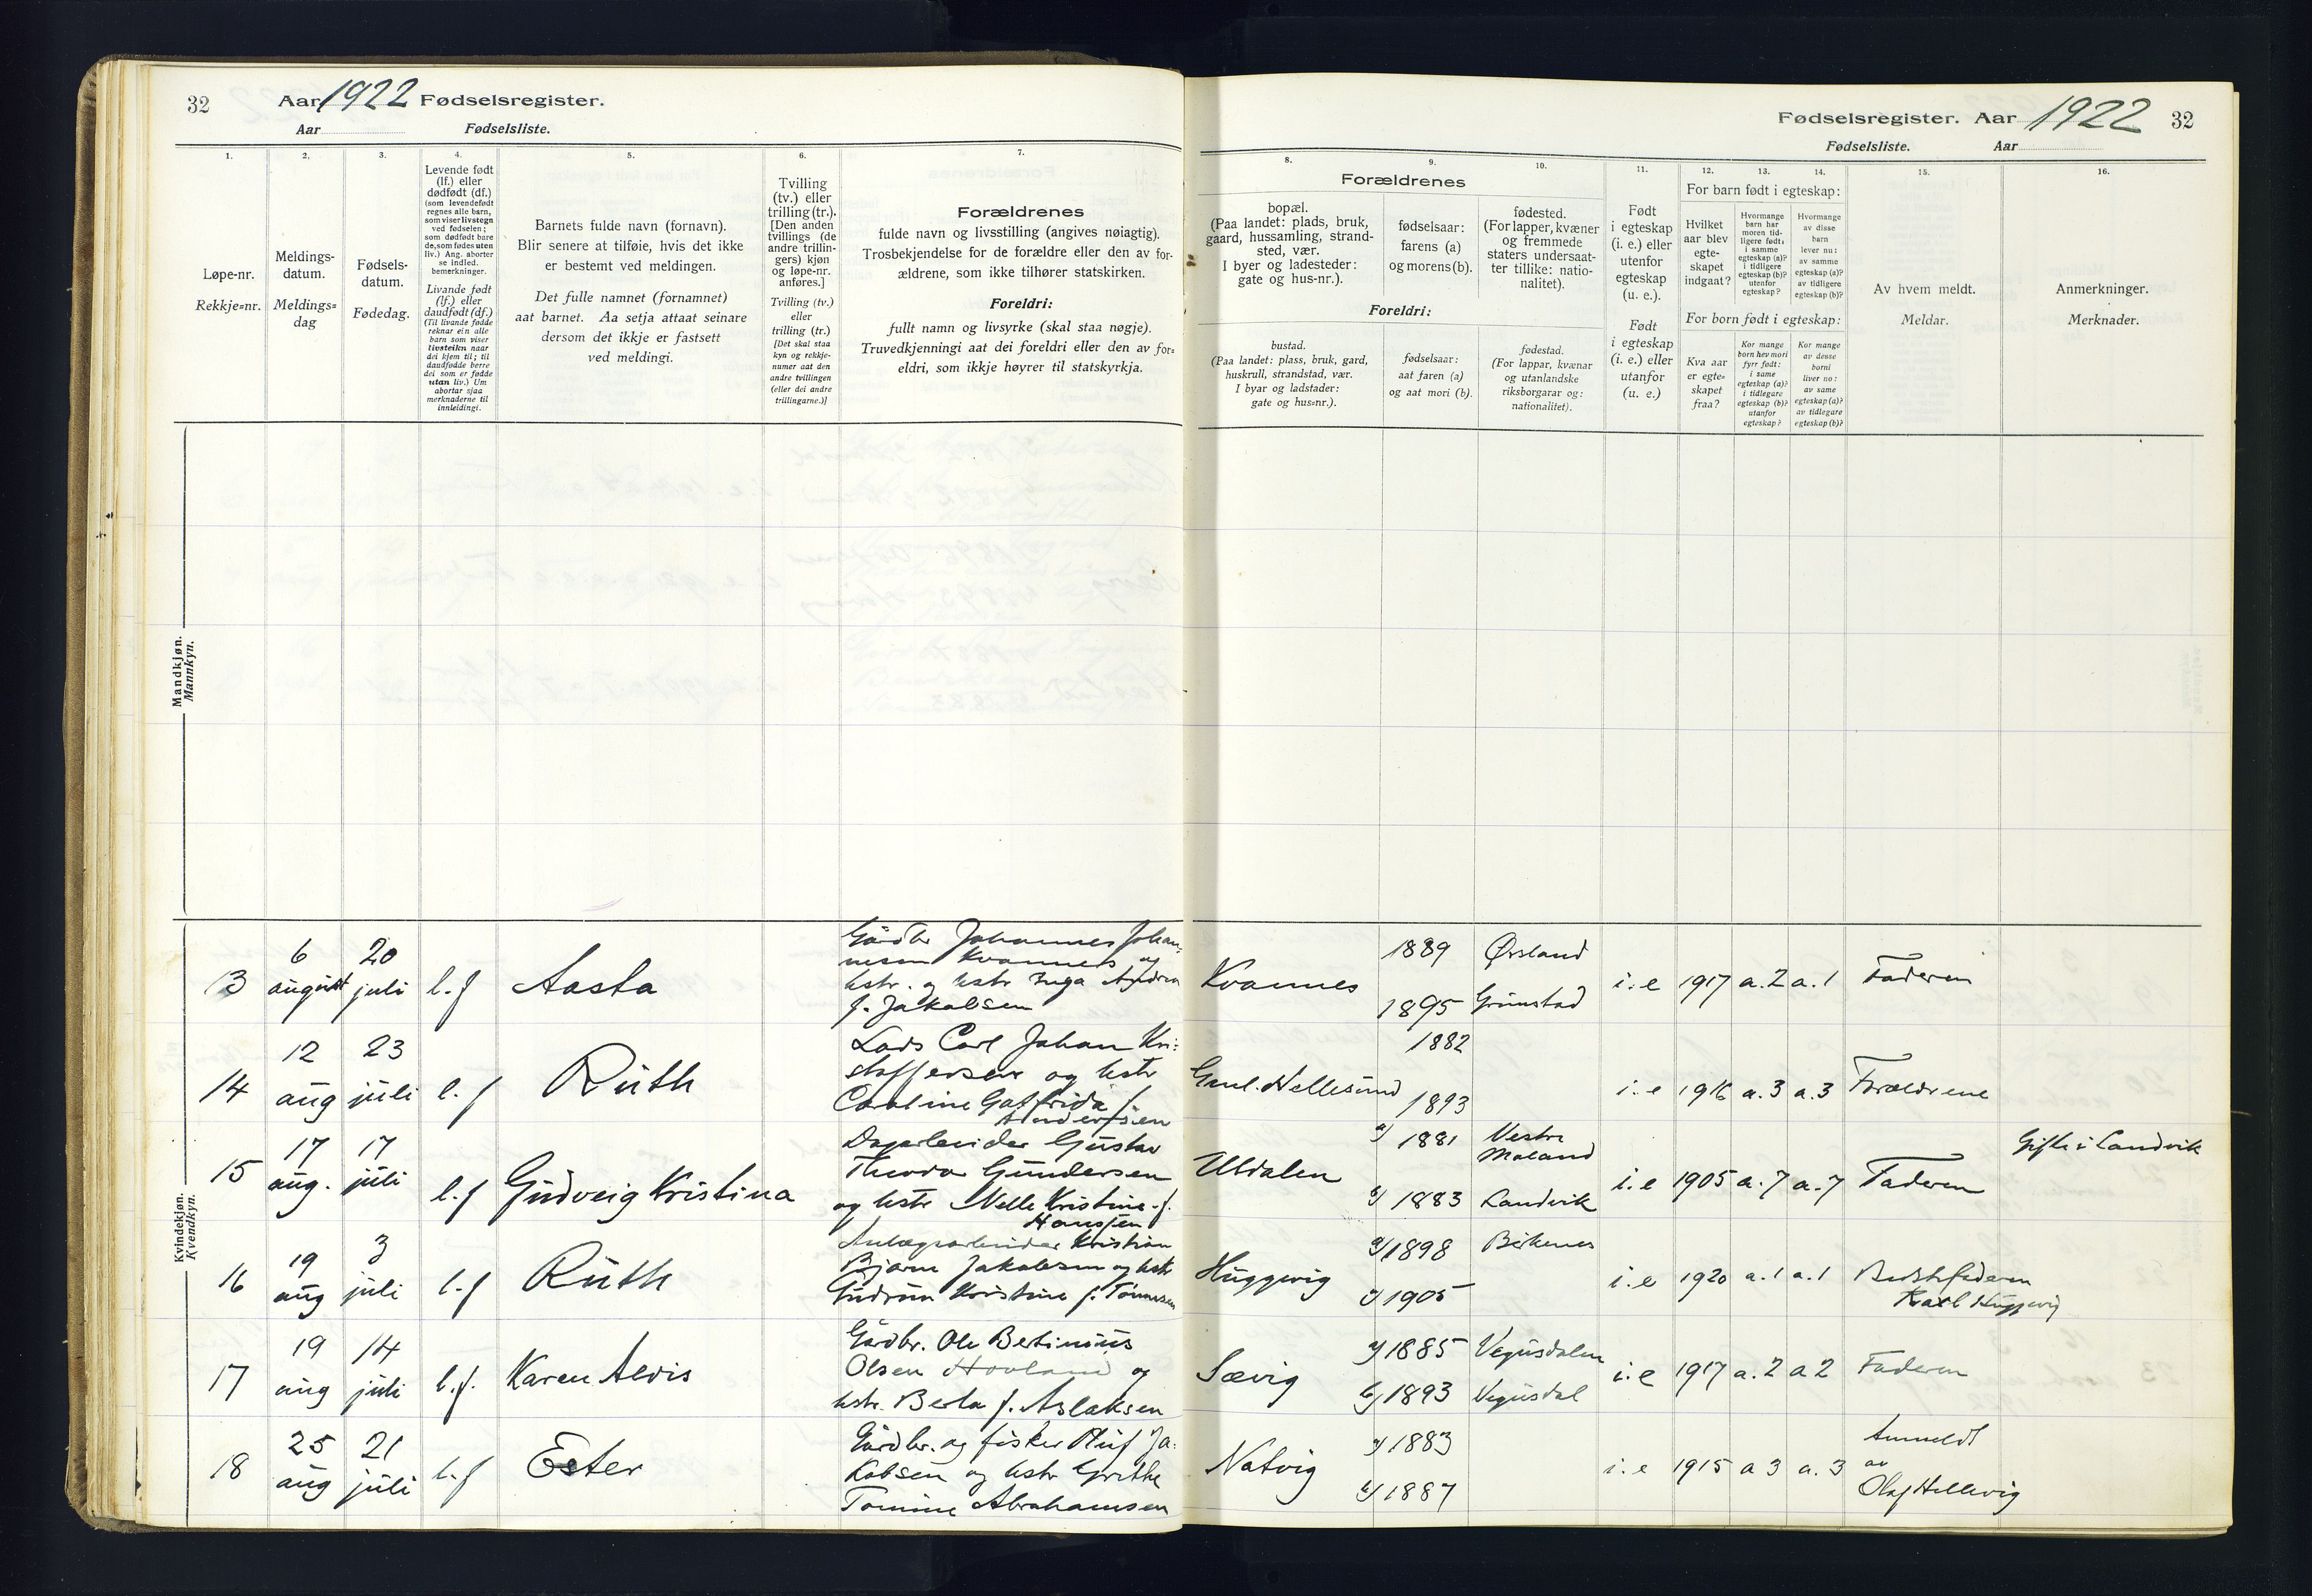 32
Aar 1922 Fødselsregister.
Aar Fødselsliste.
1.
2.
3.
4.
5.
6.
7.
Løpe-nr.
Rekkje=nr.
Meldings-
datum.
Meldings=
dag
Fødsels-
datum.
Fødedag.
Levende født
(lf.) eller
dødfødt (df.)
(som levendefødt
regnes alle barn,
som viser livstegn
ved fødselen;
som dødfødt bare
de, som fødes uten
liv.) Ang. aborter
se indled.
bemerkninger.
Livande født
(lf.) eller
daudfødt (df.)
(Til livande fødde
reknar ein alle
barn som viser
livsteikn naar
dei kjem til; til
daudfødde berre
dei som er fødde
utan liv.) Um
abortar sjaa
merknaderne til
innleidingi.
Barnets fulde navn (fornavn).
Blir senere at tilføie, hvis det ikke
er bestemt ved meldingen.
Det fulle namnet (fornamnet)
aat barnet. Aa setja attaat seinare
dersom det ikkje er fastsett
ved meldingi.
Tvilling
(tv.) eller
trilling (tr.).
[Den anden
tvillings (de
andre trillin-
gers) kjøn
og løpe-nr.
anføres.]
Tvilling (tv.)
eller
trilling (tr.)
[Det skal staa
kyn og rekkje-
numer aat den
andre tvillingen
(eller dei andre
trillingarne.)]
Forældrenes
fulde navn og livsstilling (angives nøiagtig).
Trosbekjendelse for de forældre eller den av for-
ældrene, som ikke tilhører statskirken.
Foreldri:
fullt namn og livsyrke (skal staa nøgje).
Truvedkjenningi aat dei foreldri eller den av for=
eldri, som ikkje høyrer til statskyrkja.
Mandkjøn.
Mannkyn.
Kvindekjøn.
Kvendkyn.
Fødselsregister. Aar 1922 32
Fødselsliste. Aar
8.
9.
10.
11.
12.
13.
14.
15.
16.
Forældrenes
bopæl.
(Paa landet: plads, bruk,
gaard, hussamling, strand-
sted, vær.
I byer og ladesteder:
gate og hus-nr.).
fødselsaar:
farens (a)
og morens (b).
fødested.
(For lapper, kvæner
og fremmede
staters undersaat-
ter tillike: natio-
nalitet).
Foreldri:
bustad.
(Paa landet: plass, bruk, gard,
huskrull, strandstad, vær.
I byar og ladstader:
gate og hus=nr.).
fødselsaar:
aat faren (a)
og aat mori (b).
fødestad.
(For lappar, kvænar
og utanlandske
riksborgarar og:
nationalitet).
Født
i egteskap
(i. e.) eller
utenfor
egteskap
(u. e.).
Født
i egteskap
(i. e.) eller
utanfor
(u. e.)
For barn født i egteskap:
Hvilket
aar blev
egte-
skapet
indgaat?
Hvormange
barn har
moren tid-
ligere født:
i samme
egteskap (a)?
i tidligere
egteskap (b)?
utenfor
egteskap?
Hvormange
av disse
barn
lever nu:
av samme
egteskap (a)?
av tidligere
egteskap (b)?
For born født i egteskap:
Kva aar
er egte=
skapet
fraa?
Kor mange
born hev mori
fyrr født:
i same
egteskap (a)?
i tidlegare
egteskap (b)?
utanfor
egteskap?
Kor mange
av desse
borni
liver no:
av same
egteskap (a)?
av tidlegare
egteskap (b)?
Av hvem meldt.
Meldar.
Anmerkninger.
Merknader.
13 6 august 20 juli l.f Aasta
Gårdbr Johannes Johan-
nesen Kvannes og
hstr. og hstr Inga Andrea
f. Jakobsen
Kvannes 1889 Ørsland
1895 Grimstad
i. e 1917 a. 2 a. 1 Faderen
14 12 aug 23 juli l. f Ruth
Lods Carl Johan Kri-
stoffersen og hstr
Caroline Gotfrida f
Andersen
Gml. Hellesund 1882
1893
i. e 1916 a. 3 a. 3 Forældrene
15 17 aug. 17 juli l.f Gudveig Kristina
Dagarbeider Gustav
Theodor Gundersen
og hstr Nelle Kristine f.
Hanssen
Uldalen a) 1881 Vestre
Moland
b) 1883 Landvik
i. e 1905 a. 7 a. 7 Faderen
Gifte i Landvik
16 19 aug 3 juli l.f Ruth
Anlægsarbeider Kristian
Bjarne Jakobsen og hstr
Gudrun Kristine f. Tønnesen
Huggevig a) 1898 Birkenes
b) 1905
i. e 1920 a. 1 a. 1 Bedstefaderen
Karl Huggevig
17 19 aug 14 juli l.f. Karen Alvis
Gårdbr. Ole Bertinius
Olsen Hovland og
hstr. Berta f. Aslaksen
Sævig a) 1885 Vegusdalen
b) 1893 Vegusdal
i. e 1917 a. 2 a 2 Faderen
18 25 aug 21 juli l.f Ester
Gårdbr. og fisker Oluf Ja-
kobsen og hstr Grethe
Tomine Abrahamsen
Natvig a) 1883
b) 1887
i. e 1915 a 3 a. 3 Anmeldt
av
Olaf Hellevig